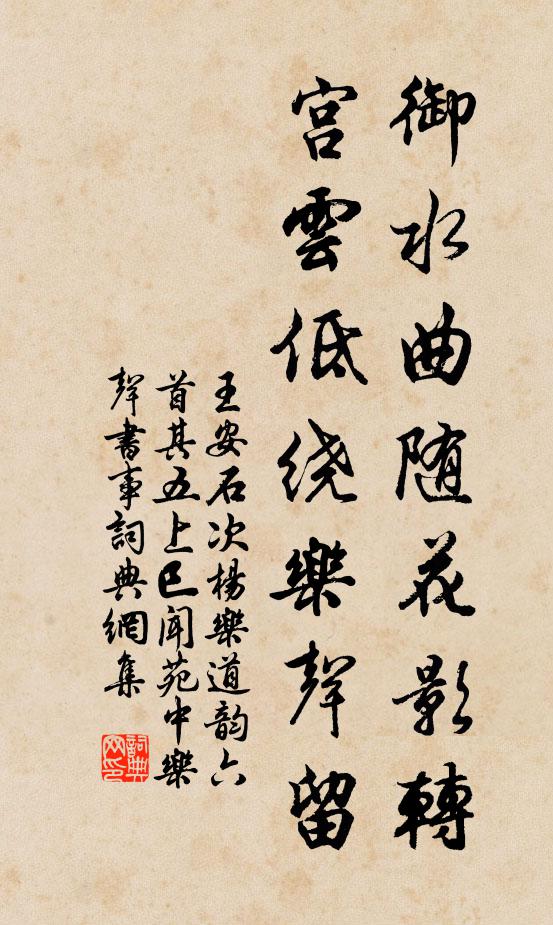 御水曲随花影轉
宮雲低绕樂聲留
王安石次楊樂道韵六
首其五上巳闻苑中樂
聲書事詞典網集
詞典
网印